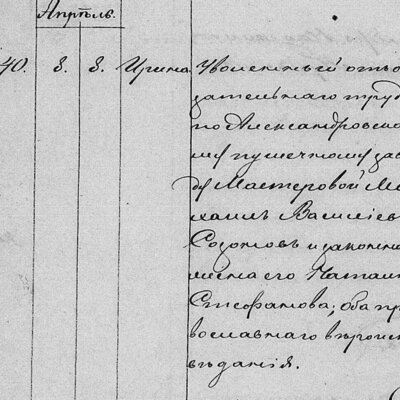 Апрѣль.
40. 8. 8. Ирина. Уволенный отъ о
зательнаго труд
по Александровско
му пушечному заво
ду Мастеровой Ми
хаилъ Василіев
Содомовъ и законна
жена его Натал
Стефанова; оба пр
вославнаго вѣроис
вѣданія.